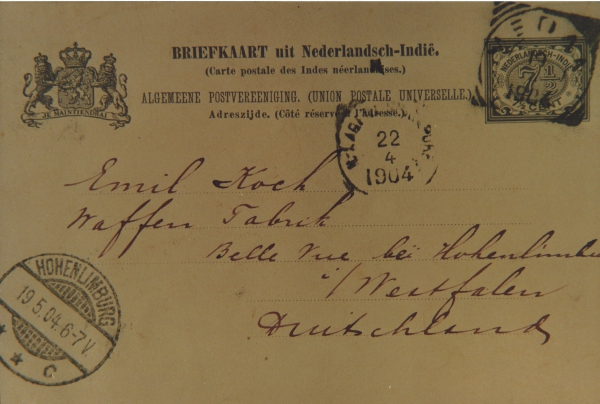 BRIEFKAART uit Nederlandsch-Indië.
(Carte postale des Indes néerlandaises.)
ALGEMEENE POSTVEREENIGING. (UNION POSTALE UNIVERSELLE.)
Adreszijde. (Côté réservé à l'Adresse.)
JE MAINTIENDRAI
NEDERLANDSCH-INDIË
7½
CENT
22
4
1904
Emil Koch
Waffen Fabrik
Belle Vue bei Hohenlimbu
i/Westfalen
Deutschland
HOHENLIMBURG
19.5.04.6-7V.
* * C